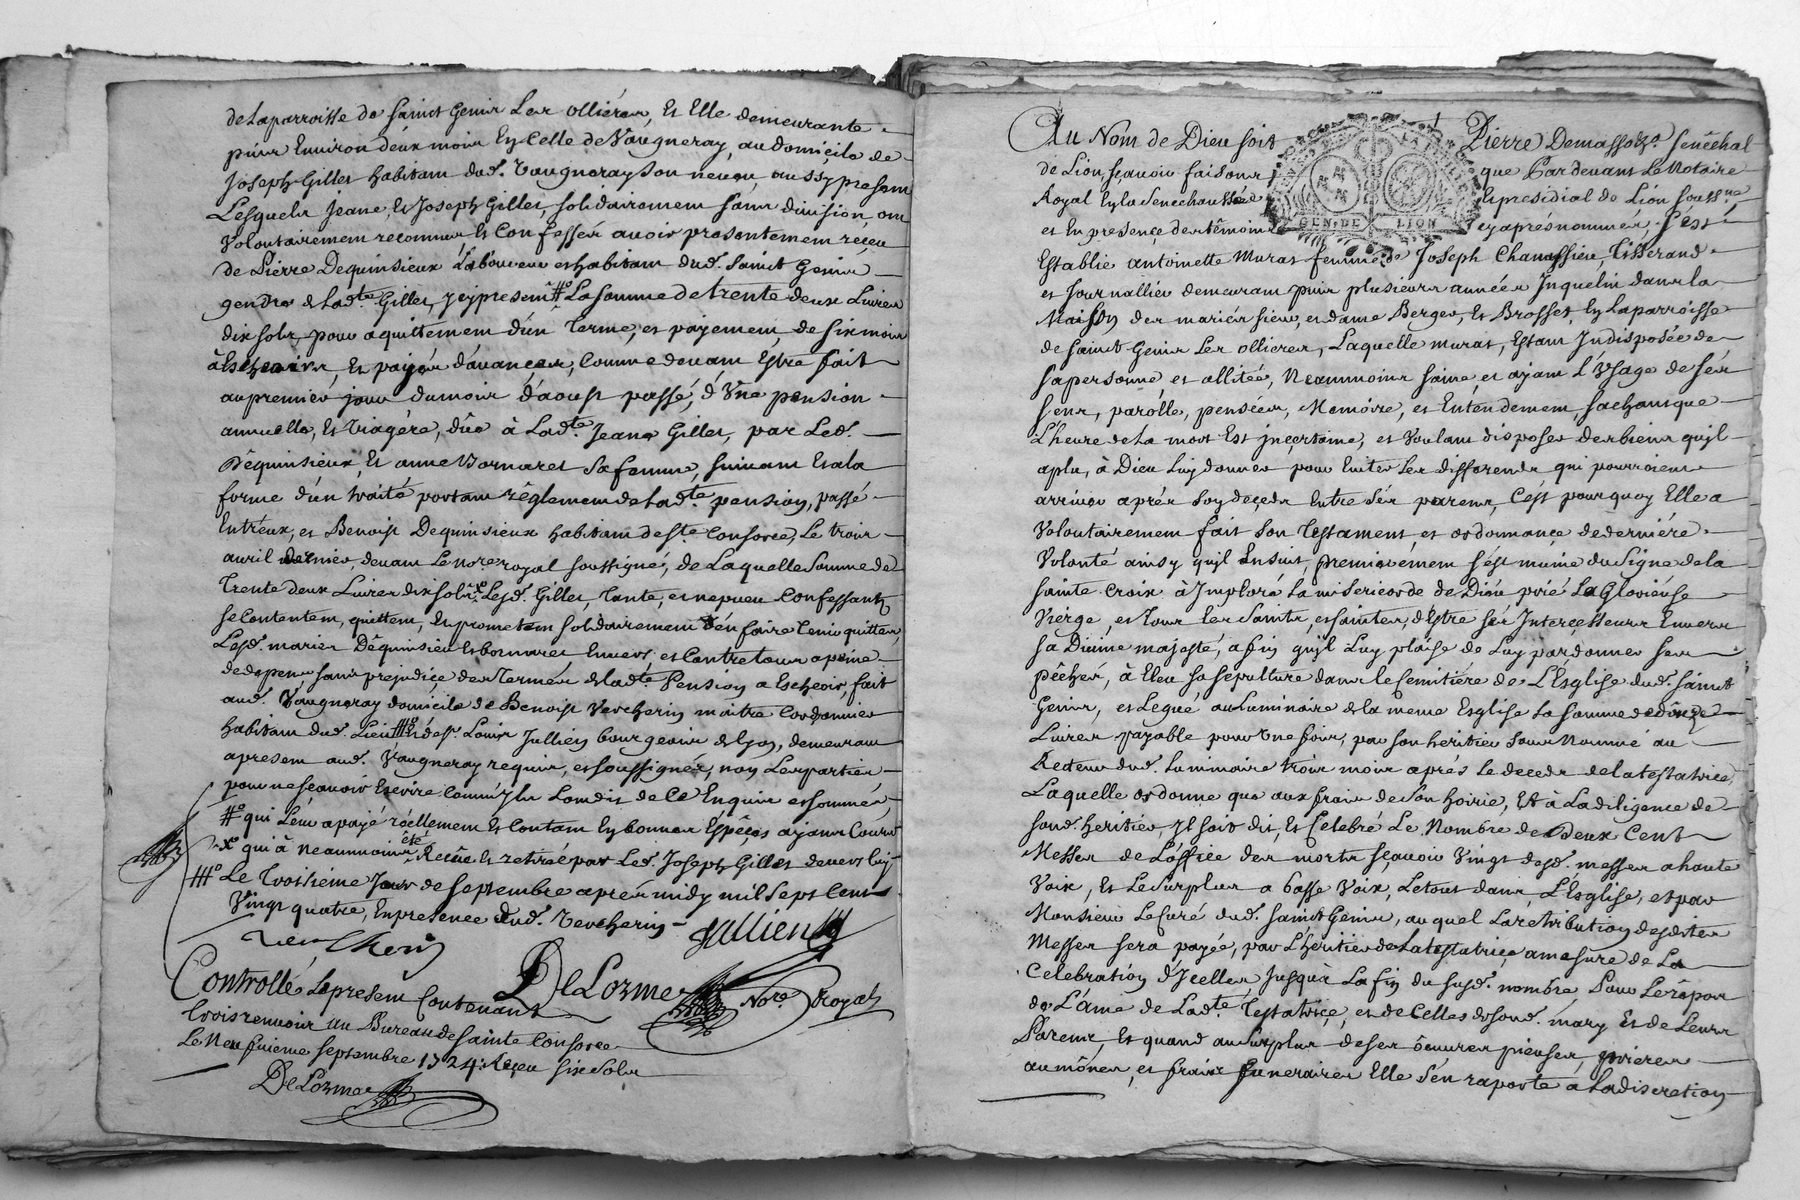 de la parroisse de saint Genis Les olliéres, Et Elle demeurante
puis Environ deux mois En Celle de Vaugneray, au domiçile de
Joseph Gillet habitant dud. Vaugneray son neveu, aussy present
Lesquels Jeane, Et Joseph Gillet, solidairement sans division, ont
Volontairement reconnu Et Confessez avoir presentement réçeu
de Pierre Dequinsieux Laboureur et habitant dud. saint Genis
gendre de Ladte. Gillet, ycy present # La somme de trente deux Livres
dix sols, pour aquittement d'un Terme, et payement, de six mois
à Escheoir, Et payés d'avançes, Comme devant Estre fait
au premier jour du mois d'aoust passé, d'Une pension
annuelle, Et Viagére, dûe à Ladte. Jeane Gillet, par Led.
Déquinsieux, Et anne Bornaret sa femme, suivant Et a la
forme d'un traité portant rêglement de Ladte. pension, passé
Entr'eux, et Benoist Dequinsieux habitant de Ste Consorce, Le trois
avril dernier, devant Le nore royal soussigné, de Laquelle somme de
Trente deux Livres dix sols x Lesd. Gillet, tante, et nepveu Confessants
se Contentent, quittent, En prometent solidairement d'en faire tenir quittes
Lesd. mariés Déquinsieu et bornaret Envers et Contre tous a peine
de depens sans prejudiçe des Termes de Ladte. Pension a Escheoir, fait
aud. Vaugneray domicile de Benoist Vercherin maitre Cordonnier
habitant dud. Lieu ### & de sr. Louis Jullien bourgeois de Lyon, demeurant
a present aud. Vaugneray requis, et soussignez, non Les parties
pour ne sçavoir Escrire Comm'ils L'ont dit de Ce Enquis et sommés,
# qui L'en a payé réellement Et Contant En bonnes Espêçes ayant Cours
x qui à neanmoins été Reçûe Et retirée par Led. Joseph Gillet devers luy
### Le Troisiéme Jour de septembre aprés midy mil sept Cent
Vingt quatre, En presence dud. Vercherin
Vercherin
Jullien
DeLorme Nore. Royal
Controllé Le present Contenant
trois renvois au Bureau de sainte Consorce
Le Neufuieme septembre 1724. Reçeu six sols
DeLorme
Au Nom de Dieu soit Pierre Demassoz. senêchal
de Lion, sçavoir faisons que Pardevant Le Notaire
Royal En La Senechaussée Et presidial de Lion souss.ne
et En presençe des têmoins cy aprés nommés, s'est
GEN. DE LION
Establie antoinette Murat femme de Joseph Chanassieu, Tisserand
et Journallier demeurant puis plusieurs années Inquelin dans la
Maison des mariés sieur, et dame Berger, Et Brosset, En La parroisse
de saint Genis Les ollieres, Laquelle murat, Estant Indisposée de
sa personne et allitée, Neanmoins saine et ayant L'Usage de sés
sens, parolle, pensées, Memoire, et Entendement, sachant que
L'heure de La mort Est inçertaine, et Voulant disposer des biens qu'il
a plu, à Dieu Luy donner pour Eviter Les differends qui pourroient
arriver aprés son deçeds Entre sés parens, C'ést pourquoy Elle a
Volontairement fait son Testament, et ordonnançe de derniére
Volonté ainsy qu'il Ensuit, premierement s'ést munie du signe de la
sainte Croix à Imploré La misericorde de Dieu prié La Glorieuse
Vierge, et Tous Les saints, et saintes, d'Estre sés Interçesseurs Envers
sa Divine majesté, afin qu'il Luy plaise de Luy pardonner ses
pêchés, à Eleu sa sepulture dans le Cemitiére de L'Esglise dud. saint
Genis, et Legué au Luminaire de La meme Esglise La somme de douze
Livres payable pour Une fois, par son heritier sous Nommé au
Recteur dud. Luminaire trois mois aprés Le deceds de la testatrice,
Laquelle ordonne que aux frais de son hoirie, Et à La diligence de
sond. heritier, Il soit dit, Et Celebré Le Nombre de Deux Cent
Messes de L'office des morts sçavoir Vingt desd. messes a haute
Voix, Et Le surplus a basse Voix, Le tout dans L'Esglise, et par
Monsieur Le Curé dud. saint Genis, au quel La retribution desdites
Messes sera payée, par L'heritier de La testatriçe, a mesure de La
Celebration d'Jcelles Jusqu'à La fin du susd. nombre Pour Le répos
de L'ame de Ladte. Testatriçe, et de Celles de sond. mary Et de Leurs
Parents, Et quand au surplus de ses oeuvres pieuses, prieres
aumônes, et frais funeraires Elle s'en raporte a La discretion